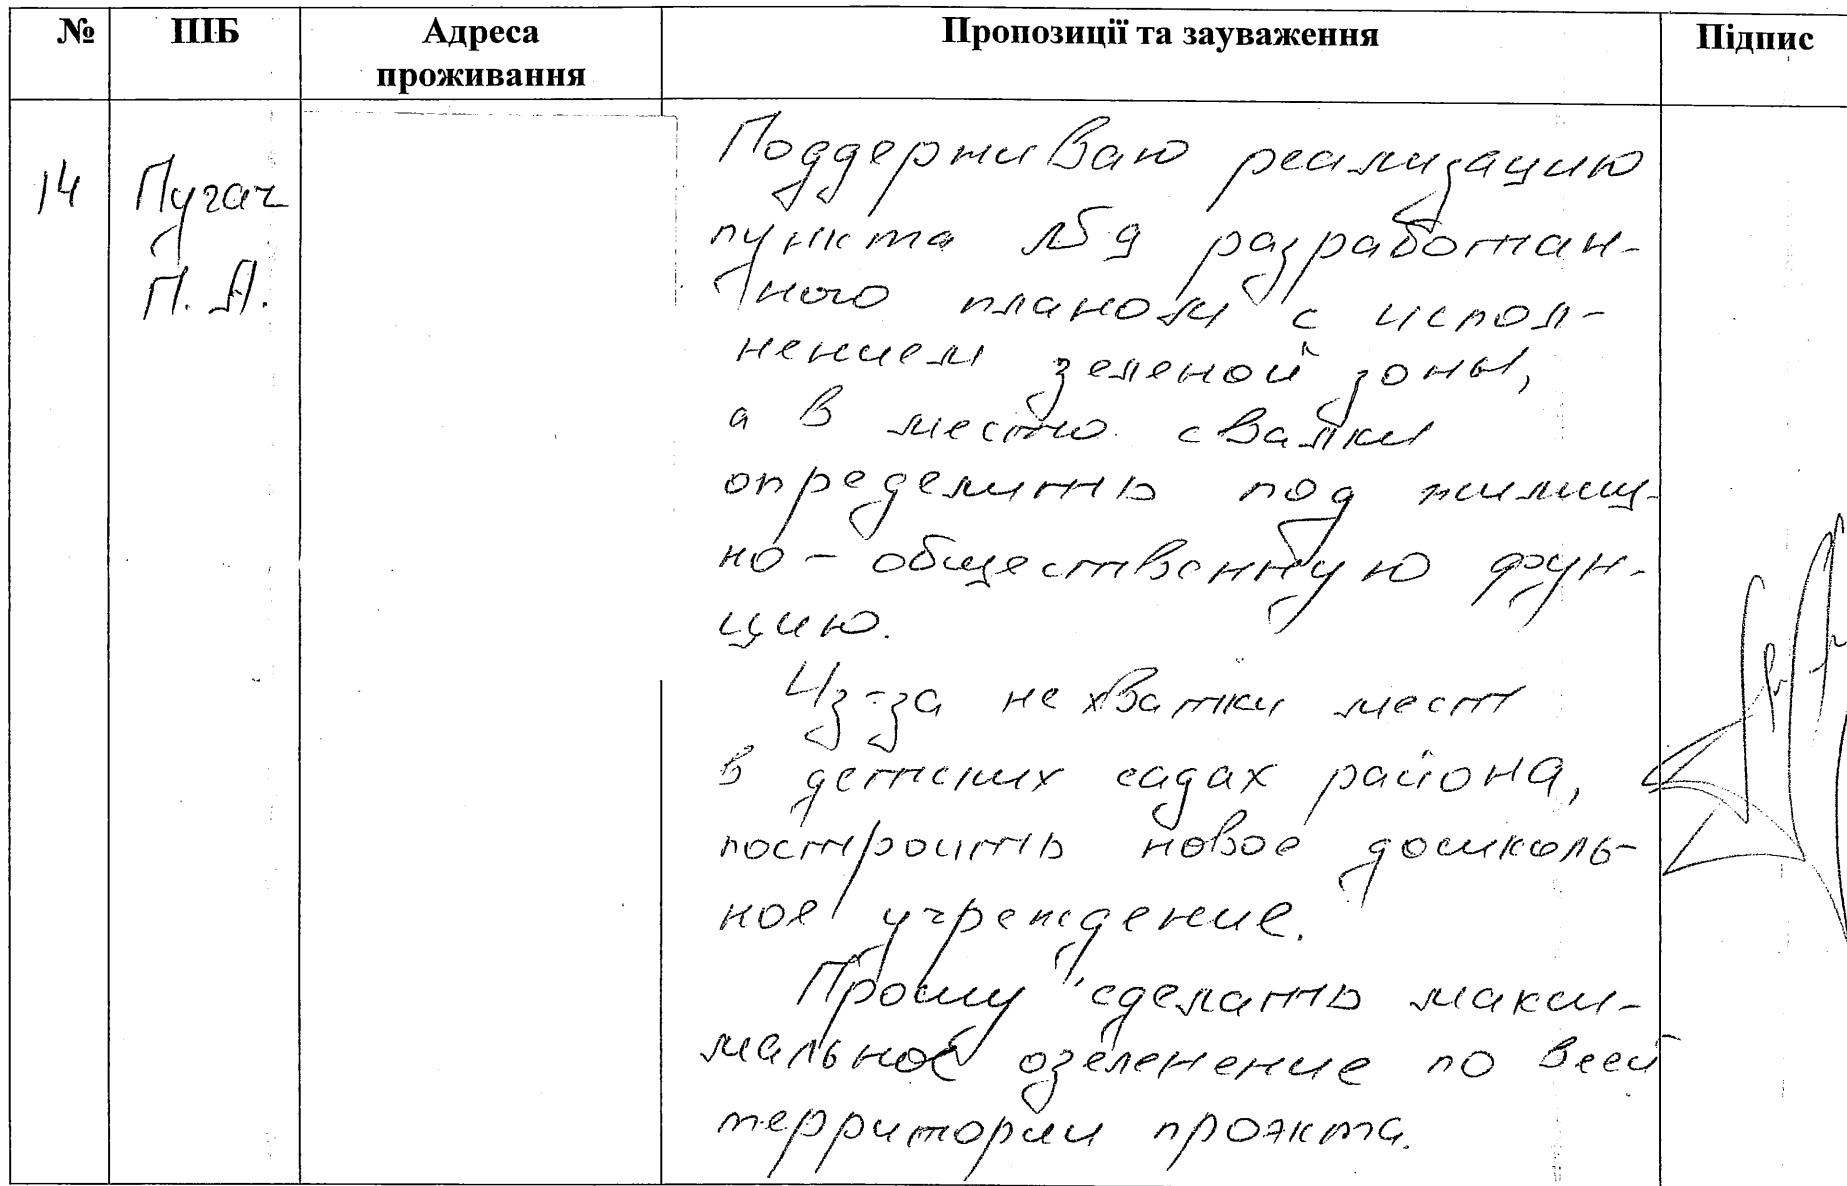 № ПІБ Адреса проживання Пропозиції та зауваження Підпис
14 Пугач П. А.
Поддерживаю реализацию
пункта №9 разработан-
ного планом с испол-
нением зеленой зоны,
а в место свалки
определить под жилищ-
но-общественную фун-
цию.
Из-за не хватки мест
в детских садах района,
построить новое дошколь-
ное учреждение.
Прошу сделать макси-
мальное озеленение по всей
территории проэкта.